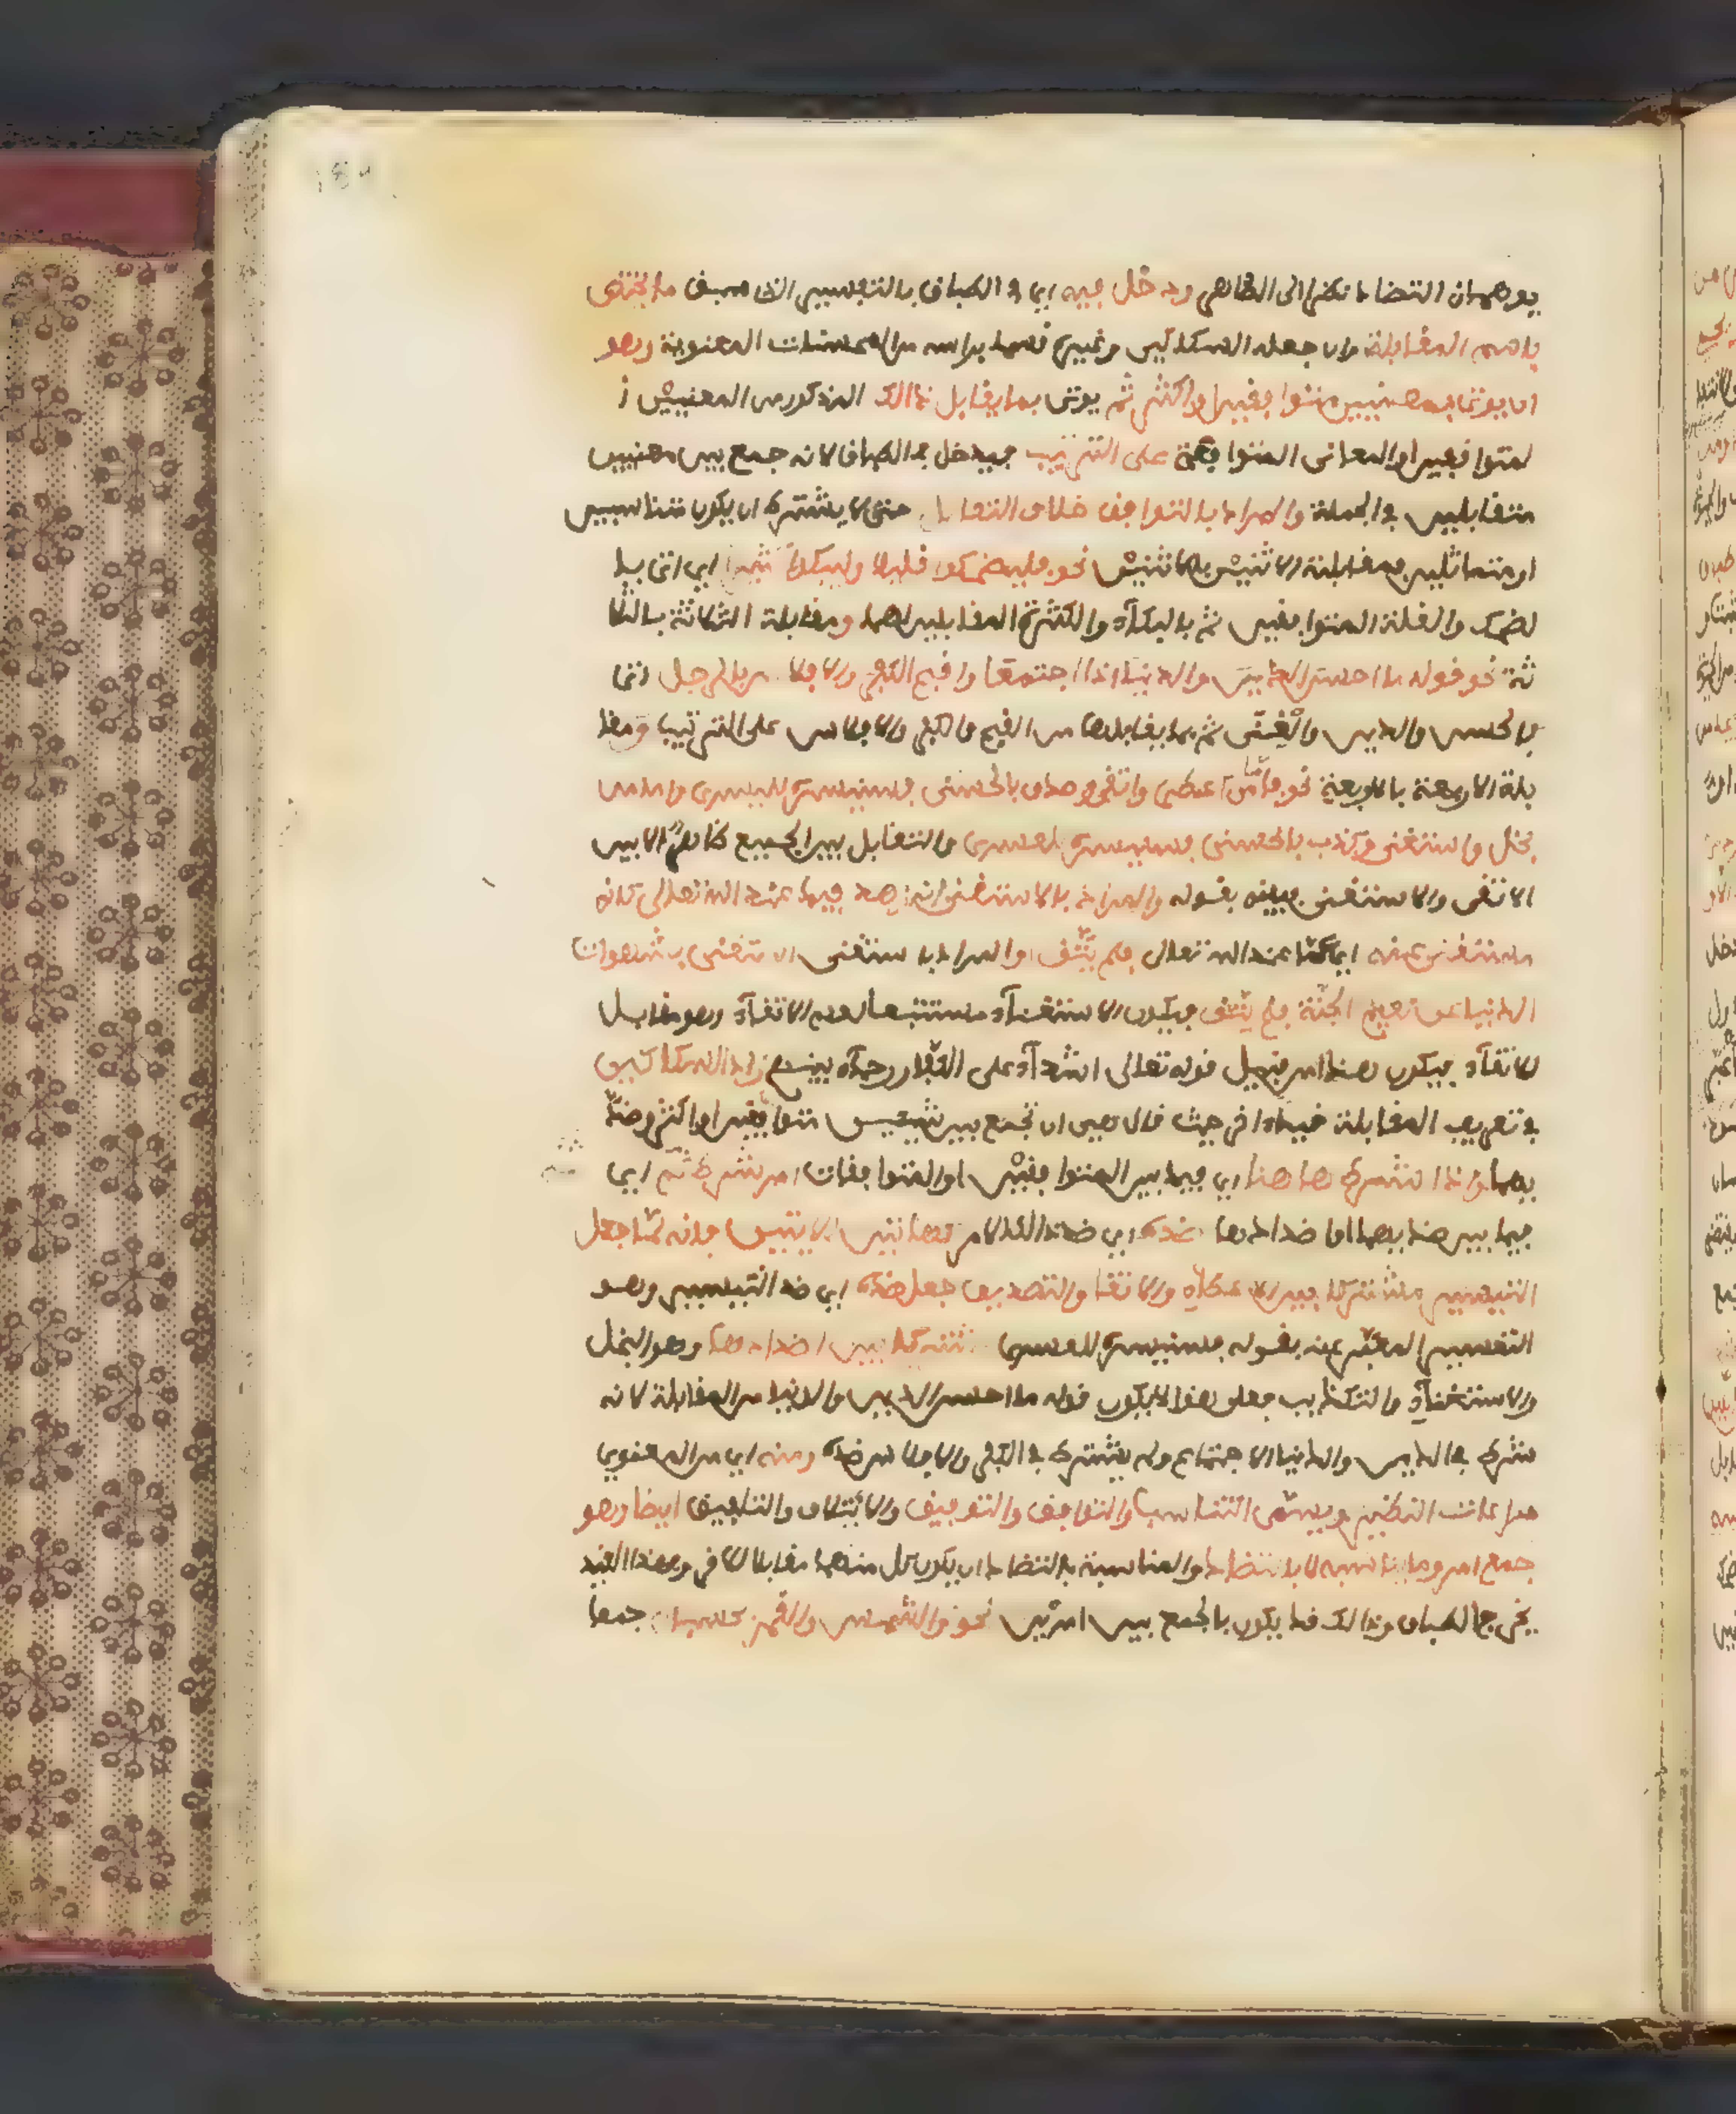 يوهمان التضاد نظرا الى الظاهر ودخل فيه اي في الطباق بالتفسير الذي سبق ما يختص
باسم المقابلة وان جعله السكاكي وغيره قسما براسه من المحسنات المعنوية وهو
ان يوتى بمعنيين متوافقين او اكثر ثم يوتى بما يقابل ذالك المذكور من المعنيين ا
لمتوافقين او المعاني المتوافقة على الترتيب فيدخل في الطباق لانه جمع بين معنيين
متقابلين في الجملة والمراد بالتوافق خلاف التقابل حتى لا يشترط ان يكون متناسبين
او متماثلين فمقابلة الاثنين بالاثنين نحو فليضحكوا قليلا وليبكوا كثيرا اي اتى با
لضحك والقلة المتوافقين ثم بالبكاء والكثرة المقابلين لهما ومقابلة الثلاثة بالثلا
ثة نحو قوله ما احسن الدين والدنيا اذا اجتمعا واقبح الكفر والافلاس بالرجل اتى
بالحسن والدين والغنى ثم بما يقابلها من القبح والكفر والافلاس على الترتيب ومقا
بلة الاربعة بالاربعة نحو فاما من اعطى واتقى وصدق بالحسنى فسنيسره لليسرى واما من
بخل واستغنى وكذب بالحسنى فسنيسره للعسرى والتقابل بين الجميع ظاهر الا بين
الاتقى والاستغنى فبينه بقوله والمراد بالاستغنى انه زهد فيما عند الله تعالى كانه
مستغن عنه اي عما عند الله تعالى فلم يتق او المراد با ستغنى استغنى بشهوات
الدنيا عن نعيم الجنة فلم يتق فيكون الاستغناء مستتبعا لعدم الاتقاء وهو مقابل
للاتقاء فيكون هذا من قبيل قوله تعالى اشداء على الكفار رحماء بينهم زاد السكاكي
في تعريف المقابلة قيدا اخر حيث قال هي ان تجمع بين شيئين متوافقين او اكثر وضد
يهما واذا شرط هاهنا اي فيما بين المتوافقين او المتوافقات امر شرط ثم اي
فيما بين ضديهما او اضدادها ضده اي ضد ذالك الامر كهاتين الايتين فانه لما جعل
التيسير مشتركا بين الاعطاء والاتقا والتصديق جعل ضده اي ضد التيسير وهو
التعسير المعبر عنه بقوله فسنيسره للعسرى مشتركا بين اضدادها وهو البخل
والاستغناء والتكذيب فعلى هذا لا يكون قوله ما احسن الدين والدنيا من المقابلة لانه
شرط في الدين والدنيا الاجتماع ولم يشترط في الكفر والافلاس ضده ومنه اي من المعنوي
مراعات النظير ويسمى التناسب والتوافق والتوفيق والائتلاف والتلفيق ايضا وهو
جمع امر وما يناسبه لا بالتضاد والمناسبة بالتضاد ان يكون كل منهما مقابلا للاخر وبهذا القيد
يخرج الطباق وذالك قد يكون بالجمع بين امرين نحو والشمس والقمر بحسبان جمعا